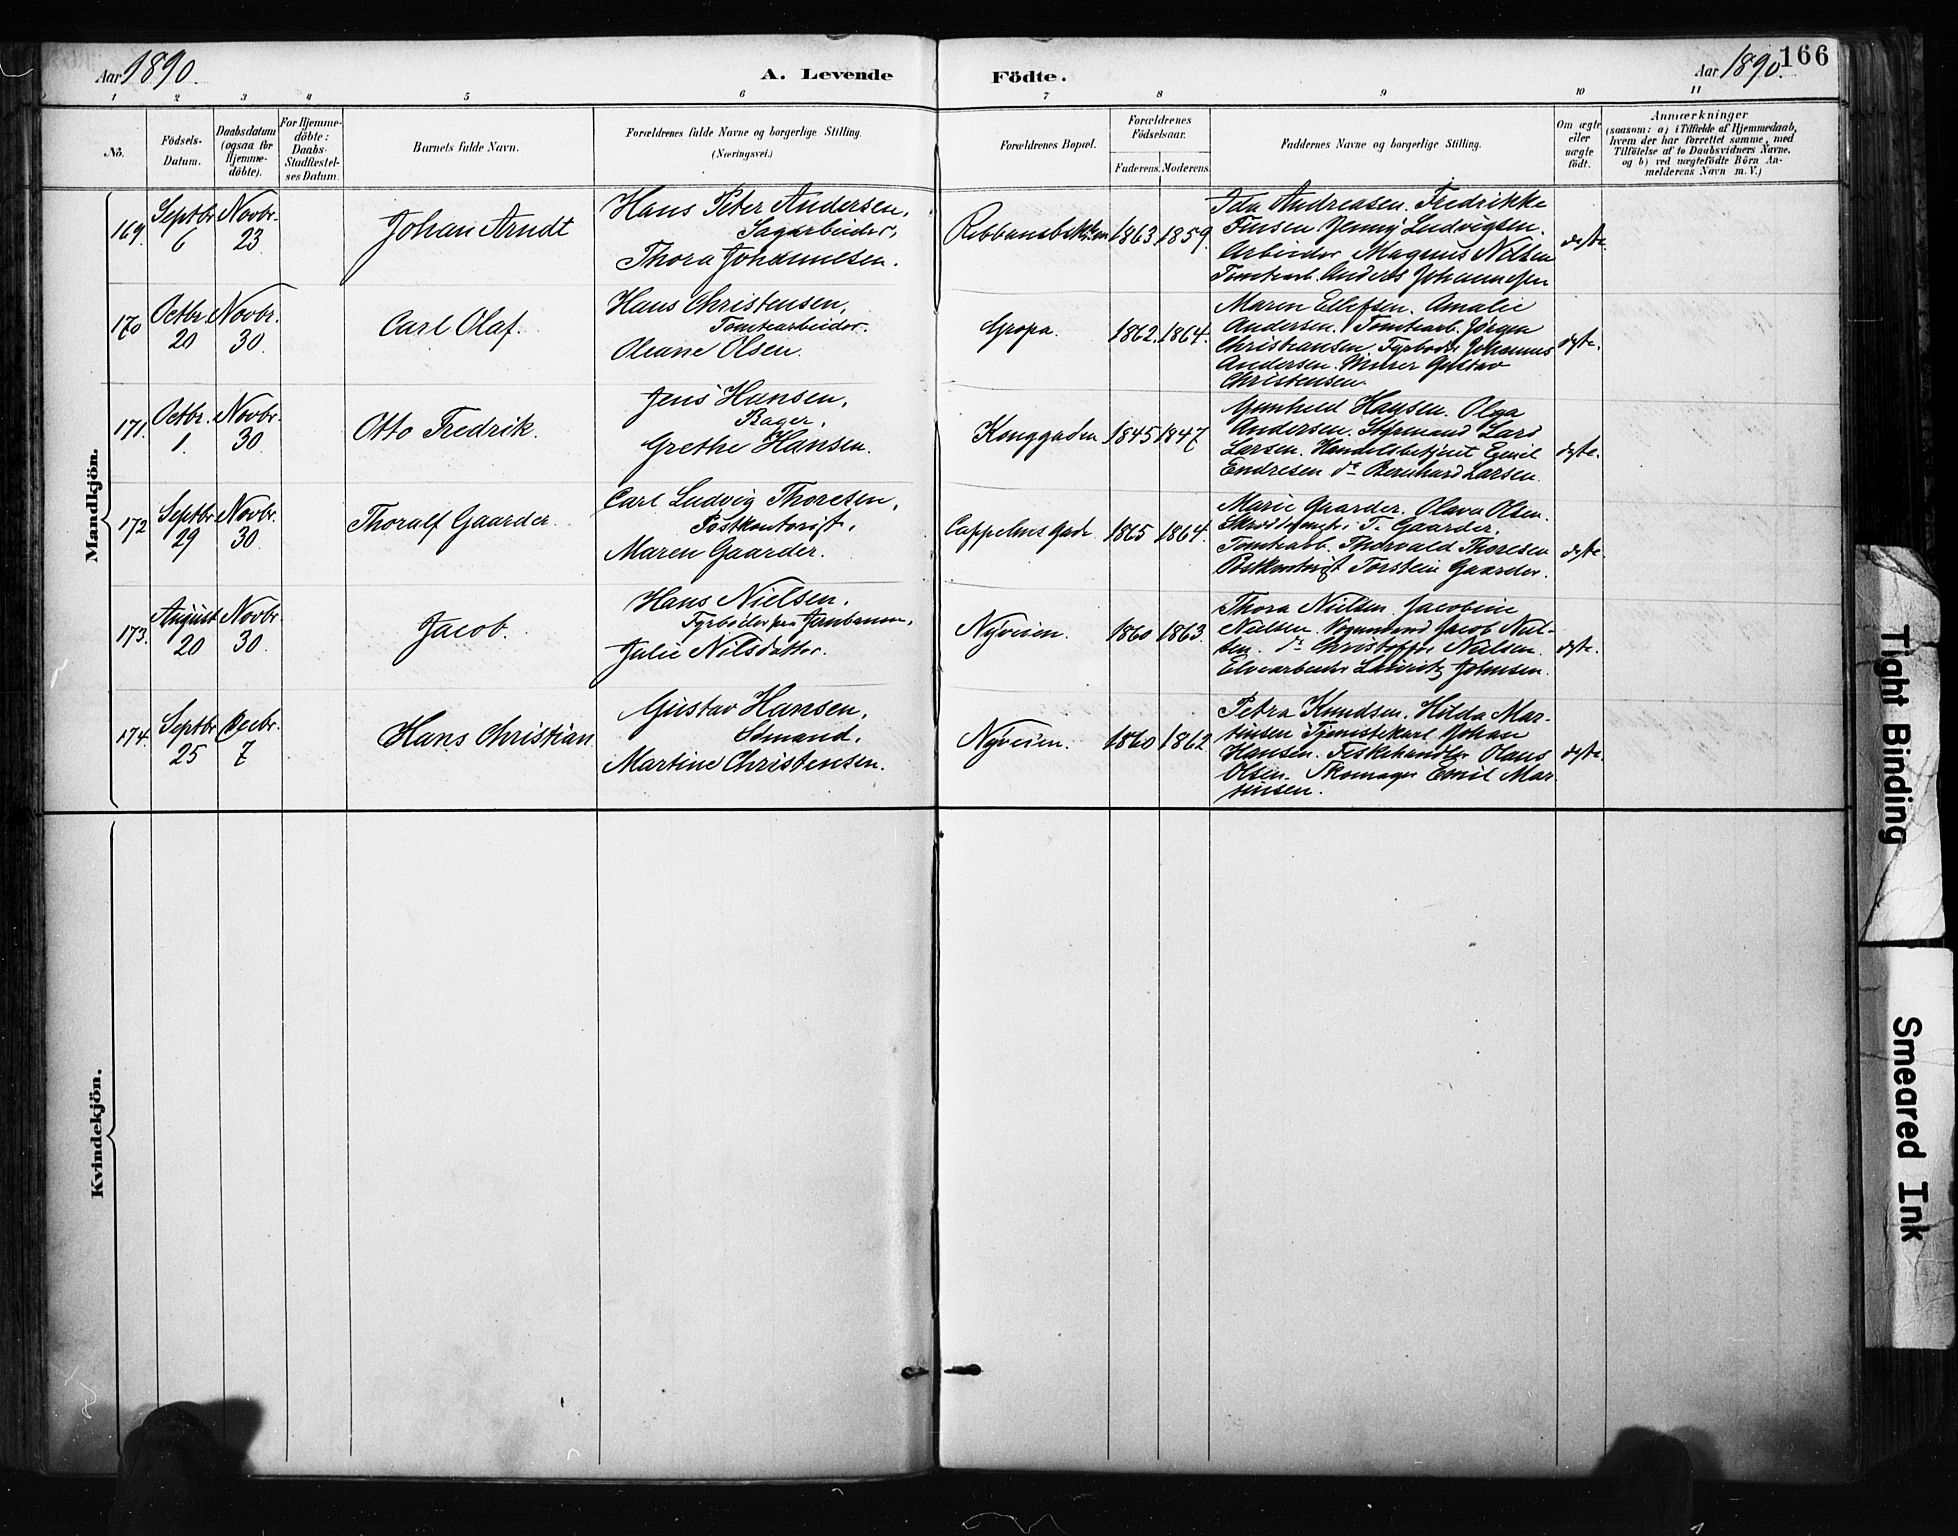 Aar 1890.
A. Levende
Födte.
Aar 1890.
166
1 2 3 4 5 6 7 8 9 10 11
No.
Födsels-
Datum.
Daabsdatum
(ogsaa for
Hjemme-
döbte).
For Hjemme-
döbte:
Daabs-
Stadfæstel-
ses Datum.
Barnets fulde Navn.
Forældrenes fulde Navne og borgerlige Stilling.
(Næringsvei.)
Forældrenes Bopæl.
Forældrenes
Födselsaar.
Faderens. Moderens.
Faddernes Navne og borgerlige Stilling.
Om ægte
eller
uægte
födt.
Anmærkninger
(saasom: a) i Tilfælde af Hjemmedaab,
hvem der har forrettet samme, med
Tilföielse af to Daabsvidners Navne,
og b) ved uægtefödte Börn An-
melderens Navn m. V.)
Mandkjön.
169.
Septbr
6
Novbr.
23.
Johan Arndt
Hans Peter Andersen,
Sagarbeider,
Thora Johannesen.
1863
1859.
Ida Andreasen. Fredrikke
Finsen Jenny Ludvigsen.
Arbeider Magnus Nilsen
Tomtearb. Anders Johannesen
170
Octbr.
20
Novbr.
30.
Carl Olaf.
Hans Christensen,
Tomtearbeider.
Oleane Olsen.
Gropa.
1862.
1864.
Maren Ellefsen. Amalie
Andersen. Tomtearb. Jörgen
Christiansen. Fyrböder Johannes
Andersen. Murer Gustav
Christensen.
171.
Octbr.
1.
Novbr.
30
Otto Fredrik.
Jens Hansen,
Bager,
Grethe Hansen.
Konggaden
1845
1847
Gunhild Hansen. Olga
Andersen. Styrmand Lars
Larsen. Handelsbetjent Emil
Endresen do Bernhard Larsen.
172
Septbr
29
Novbr.
30.
Thoralf Gaarder.
Carl Ludvig Thoresen,
Postkontorist,
Maren Gaarder.
Cappelens Gade
1865
1864.
Marie Gaarder. Olava Olsen.
T. Gaarder.
Tomtearb. Thorvald Thoresen
Postkontorist Torstein Gaarder.
173.
August
20
Novbr.
30.
Jacob.
Hans Nielsen.
Fyrböder paa Jernbanen,
Julie Nilsdatter.
Nyveien.
1860
1863.
Thora Nielsen. Jacobine
Nielsen. Vognmand Jacob Niel-
sen. do Christoffer Nielsen.
Elvearbeider Lauritz Johnsen.
174.
Septbr
25
Decbr.
7
Hans Christian
Gustav Hansen,
Sömand,
Martine Christensen.
Nyveien.
1860
1862
Petra Knudsen. Hilda Mar-
tinsen Tjenestekarl Johan
Hansen. Fiskehandler Olaus
Olsen. Skomager Emil Mar-
tinsen.
Kvindekjön.
Tight Binding
Smeared Ink